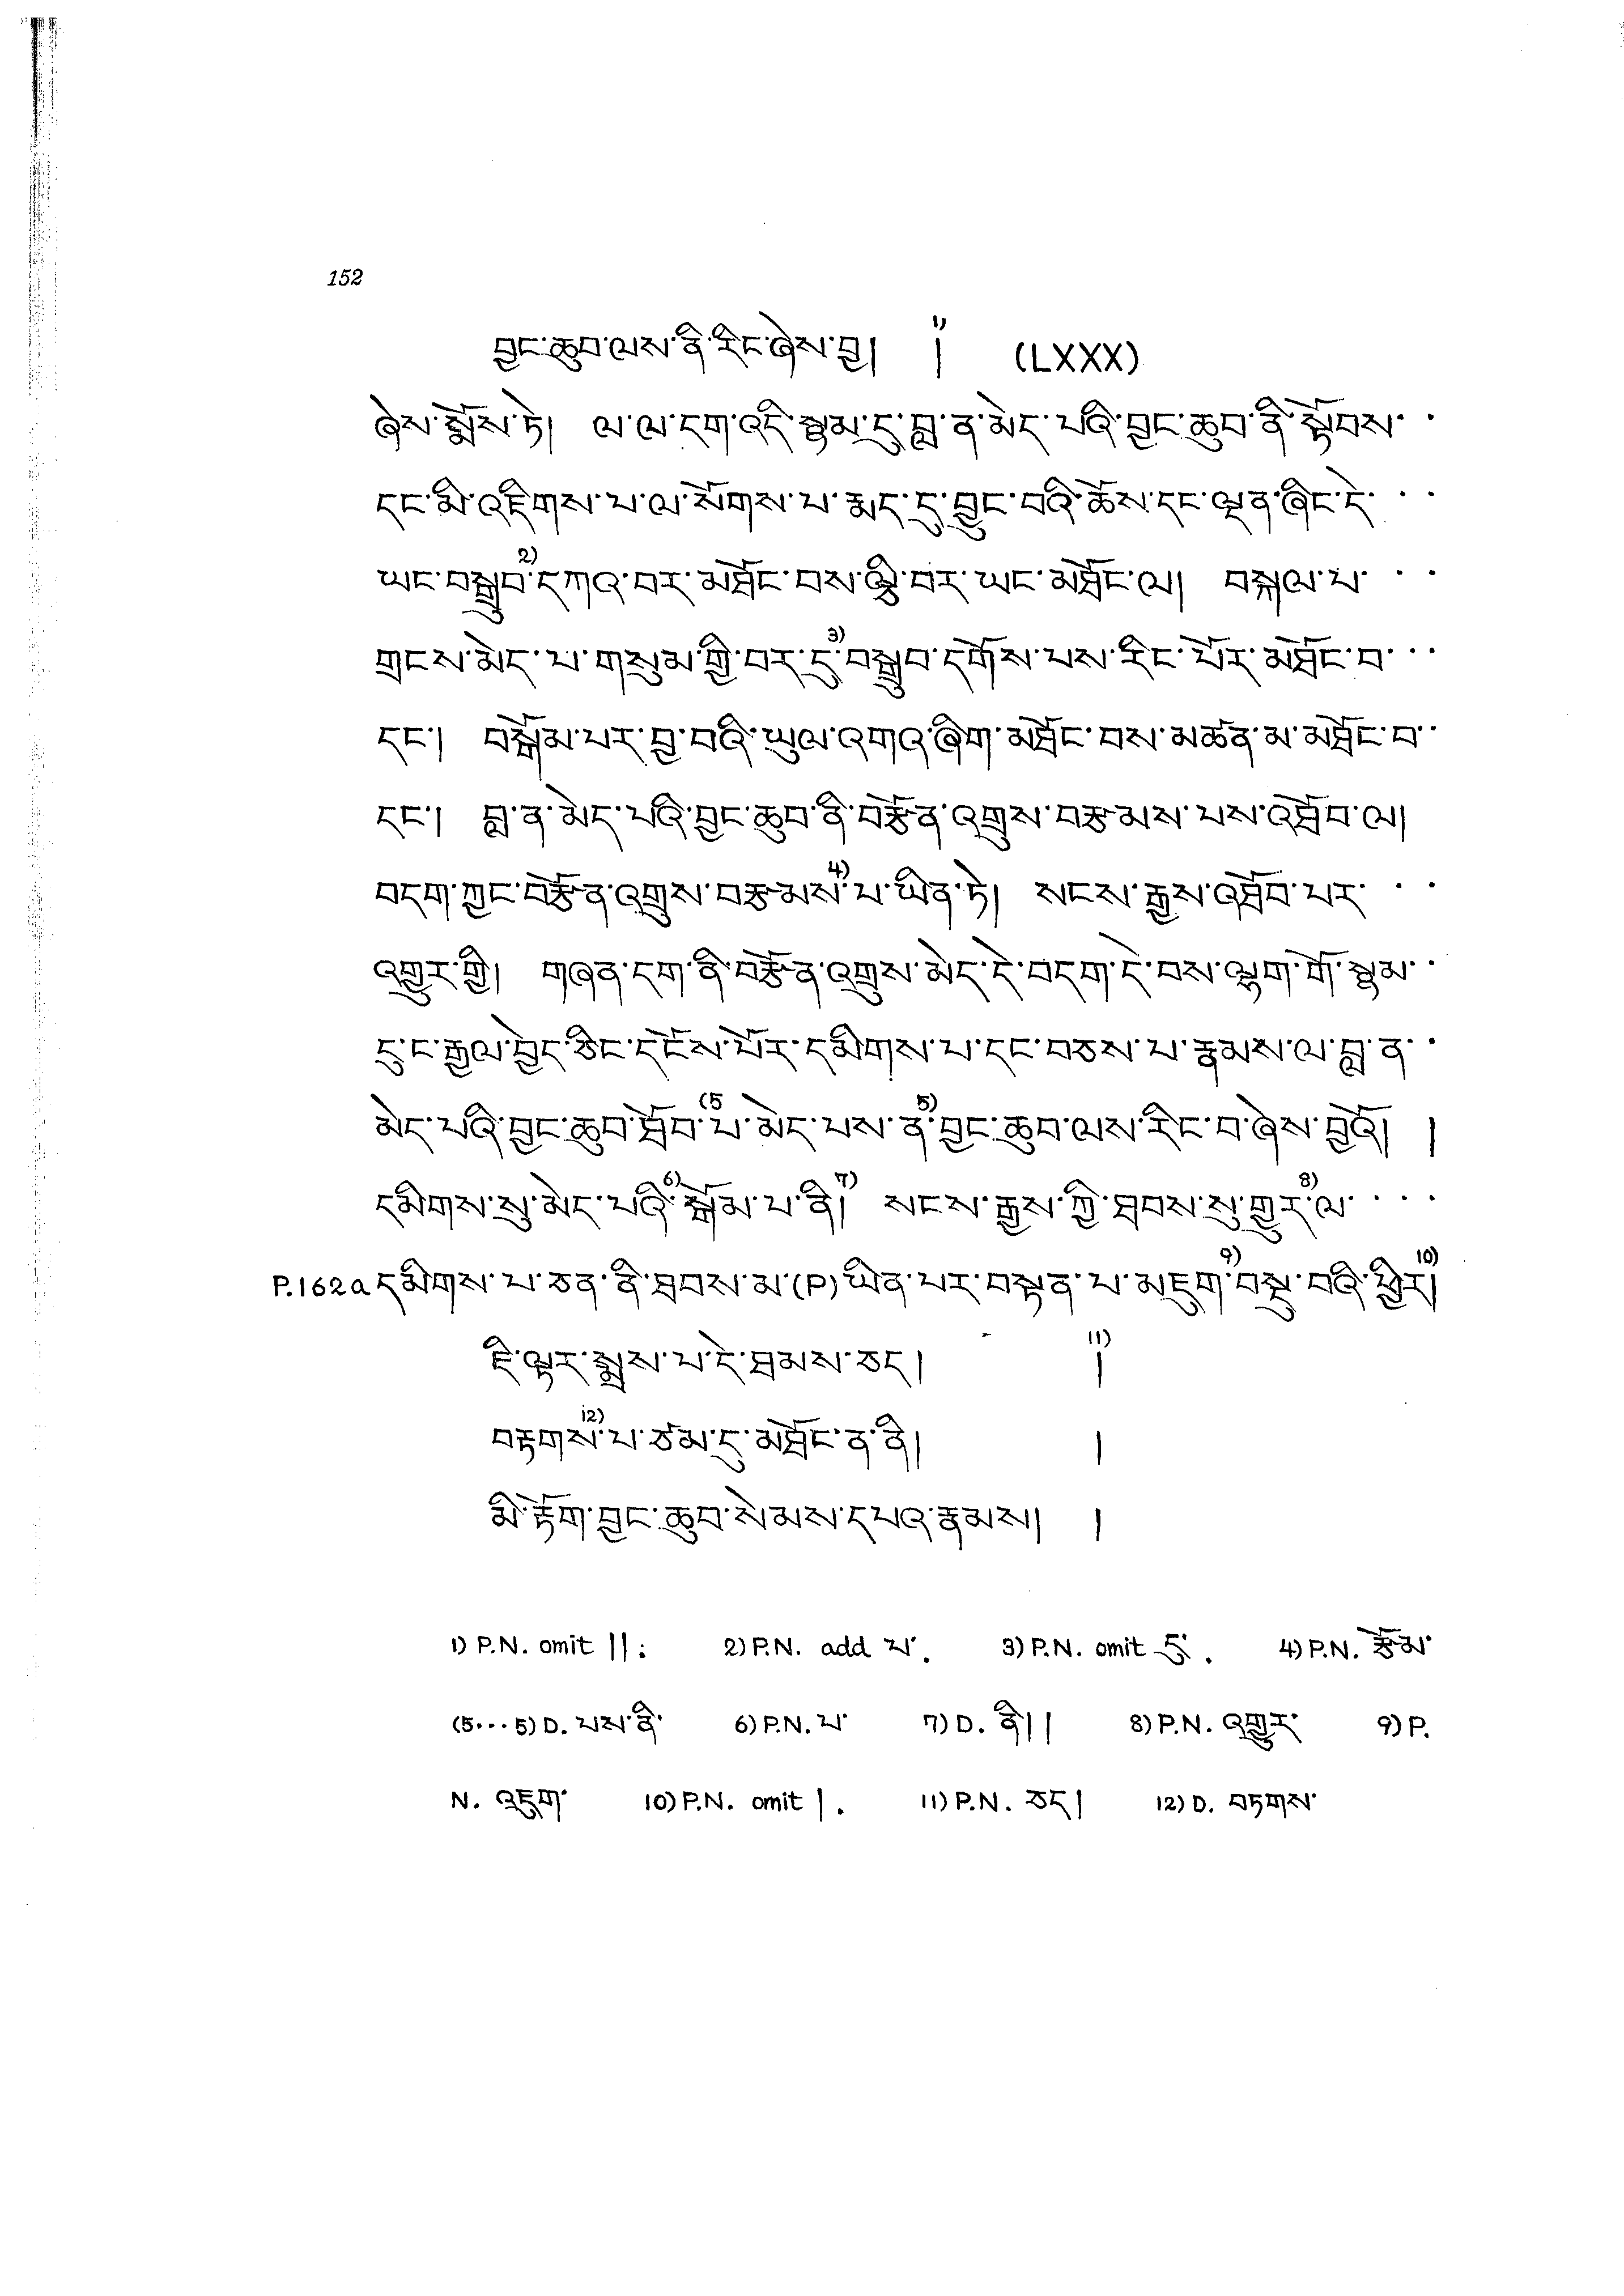 152
བྱང་ཆུབ་ལས་ནི་རིང་ཞེས་བྱ། 1)། (LXXX)
ཞེས་སྨོས་ཏེ། ལ་ལ་དག་འདི་སྙམ་དུ་བླ་ན་མེད་པའི་བྱང་ཆུབ་ནི་སྟོབས་ ·
དང་མི་འཇིགས་པ་ལ་སོགས་པ་རྨད་དུ་བྱུང་བའི་ཆོས་དང་ལྡན་ཞིང་དེ་ · ·
ཡང་བསྒྲུབ་2)དཀའ་བར་མཐོང་བས་ལྕི་བར་ཡང་མཐོང་ལ། བསྐལ་པ་ · ·
གྲངས་མེད་པ་གསུམ་གྱི་བར་དུ་3)བསྒྲུབ་དགོས་པས་རིང་པོར་མཐོང་བ་ · ·
དང་། བསྒོམ་པར་བྱ་བའི་ཡུལ་འགའ་ཞིག་མཐོང་བས་མཚན་མ་མཐོང་བ་ ·
དང་། བླ་ན་མེད་པའི་བྱང་ཆུབ་ནི་བརྩོན་འགྲུས་བརྩམས་པས་འཐོབ་ལ།
བདག་ཀྱང་བརྩོན་འགྲུས་བརྩམས་4)པ་ཡིན་ཏེ། སངས་རྒྱས་འཐོབ་པར་ · ·
འགྱུར་གྱི། གཞན་དག་ནི་བརྩོན་འགྲུས་མེད་དེ་བདག་དེ་བས་ལྷག་གོ་སྙམ་ ·
དུ་ང་རྒྱལ་བྱེད་ཅིང་དངོས་པོར་དམིགས་པ་དང་བཅས་པ་རྣམས་ལ་བླ་ན་ ·
མེད་པའི་བྱང་ཆུབ་ཐོབ་(5པ་མེད་པས་ན་5)བྱང་ཆུབ་ལས་རིང་བ་ཞེས་བྱའོ། །
དམིགས་སུ་མེད་པའི་6)སྒོམ་པ་ནི།7) སངས་རྒྱས་ཀྱི་ཐབས་སུ་གྱུར་8)ལ་ · · ·
P.162a དམིགས་པ་ཅན་ནི་ཐབས་མ་(P)ཡིན་པར་བསྟན་པ་མཇུག་9)བསྡུ་བའི་ཕྱིར།10)
ཇི་ལྟར་སྨྲས་པ་དེ་ཐམས་ཅད། 11)།
བརྟགས་12)པ་ཙམ་དུ་མཐོང་ན་ནི། །
མི་རྟོག་བྱང་ཆུབ་སེམས་དཔའ་རྣམས། །
1) P.N. omit ||. 2) P.N. add པ་. 3) P.N. omit དུ་. 4) P.N. རྩོམ་
(5···5) D. པས་ནི་ 6) P.N. པ་ 7) D. ནི།། 8) P.N. འགྱུར་ 9) P.
N. འཇུག་ 10) P.N. omit |. 11) P.N. ཅད། 12) D. བཏགས་